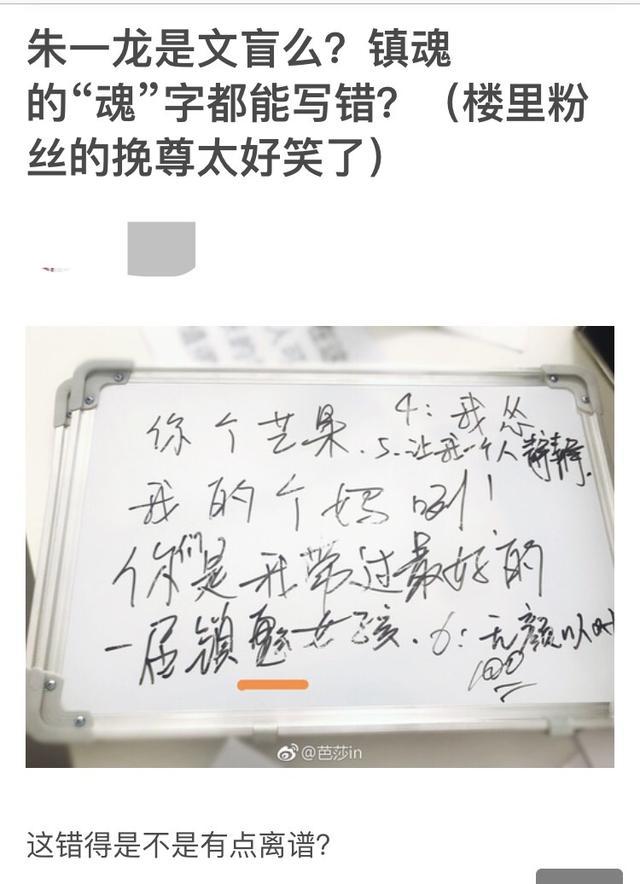 朱一龙是文盲么？镇魂
的“魂”字都能写错？（楼里粉
丝的挽尊太好笑了）
你个芒果. 4：我怂
5.让我一个人静静.
我的个妈咧！
你们是我带过最好的
一届镇魂女孩. 6：无颜以对
100
@芭莎in
这错得是不是有点离谱？